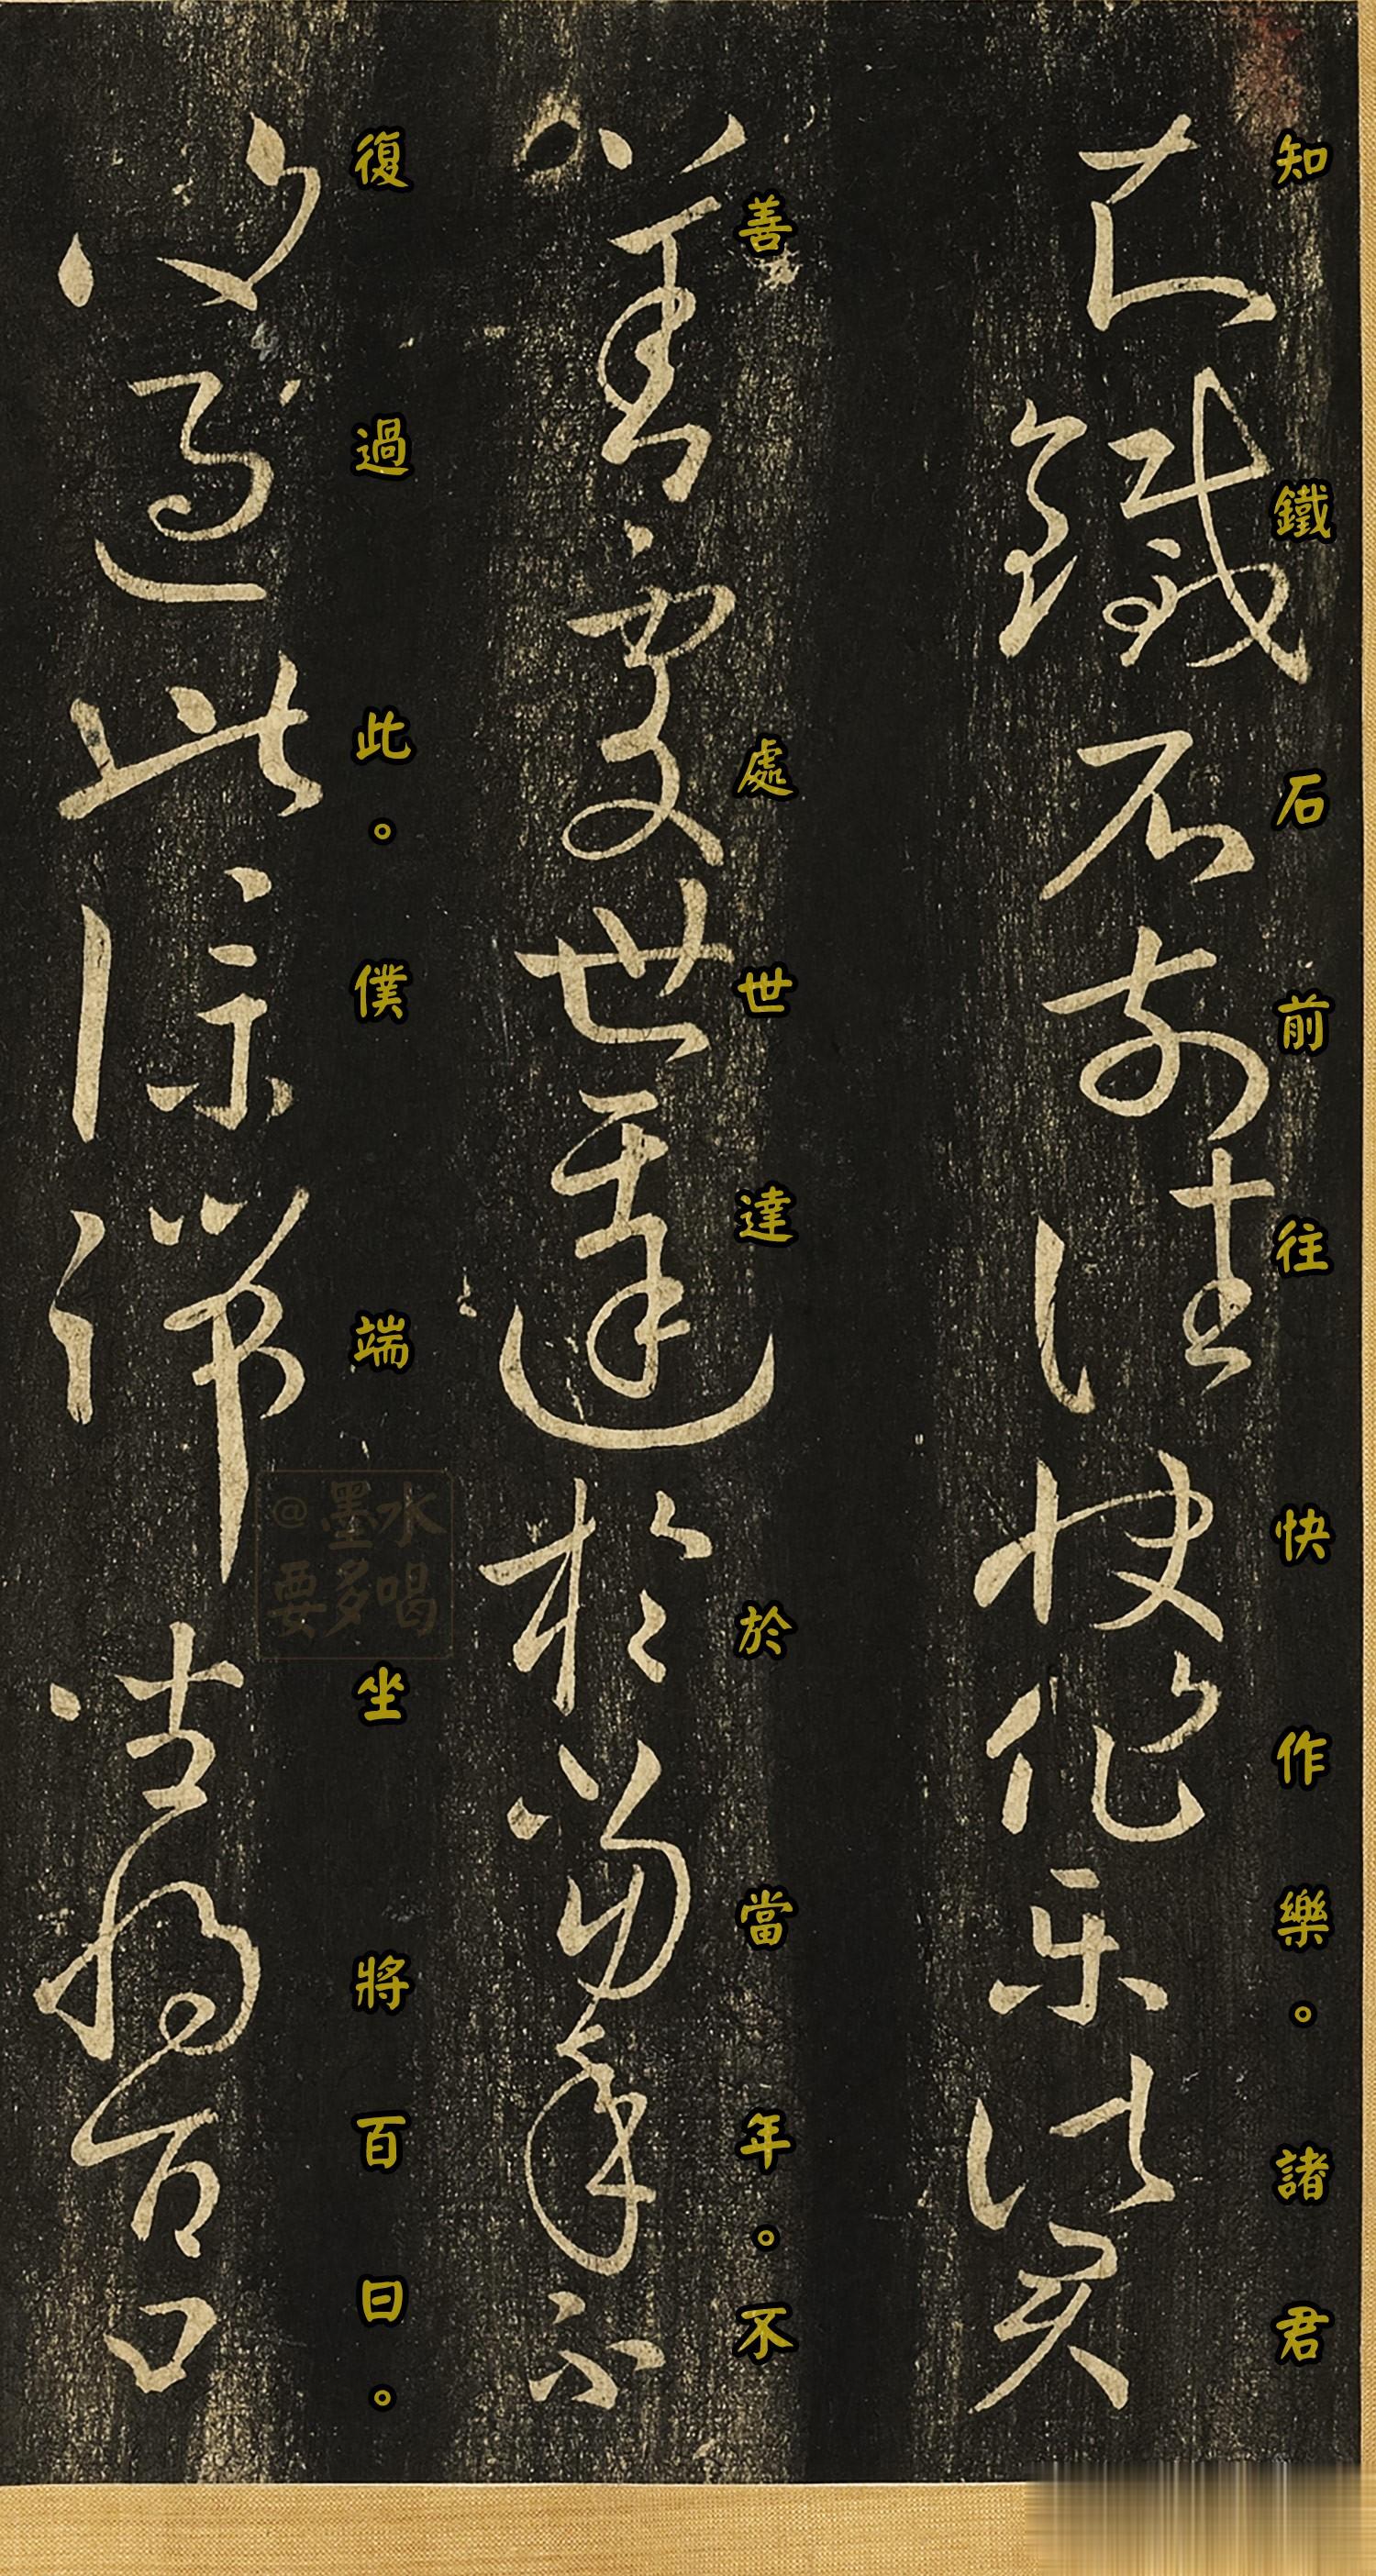 知鐵石前往快作樂。諸君
善處世達於當年。不
復過此。僕端坐將百曰。
@墨水
要多喝